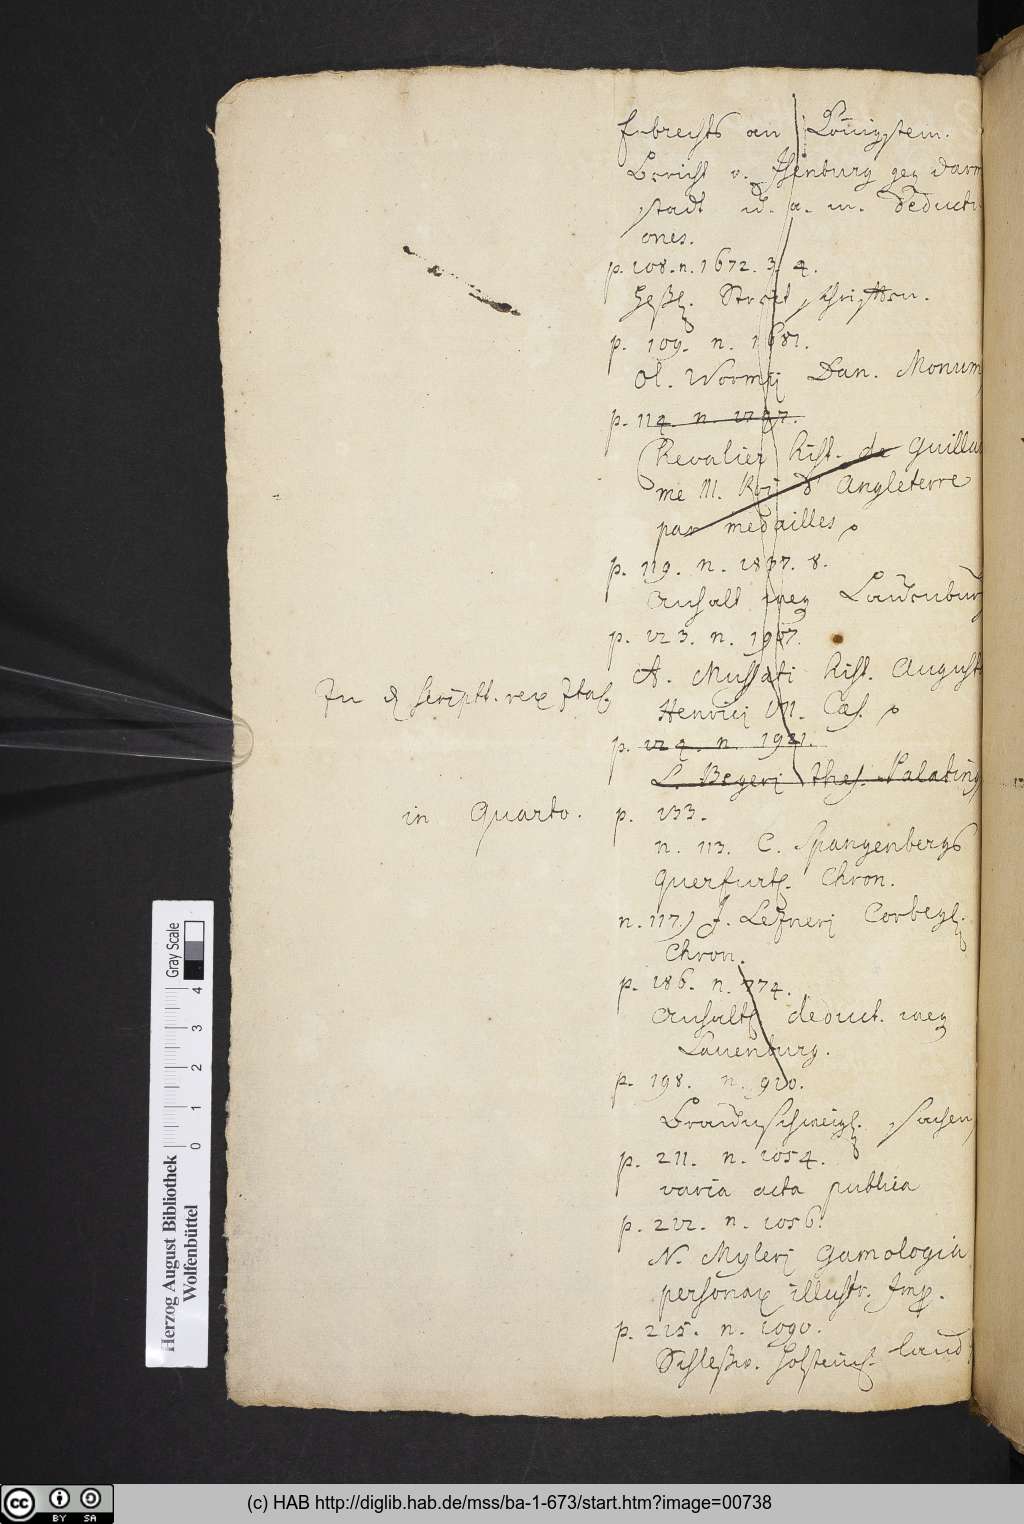 Erbrechts an Königstein.
Bericht v. Isenburg geg Darm
stadt u. a. m. deducti
ones.
p. 108. n. 1672. 3. 4.
Heßl. Streit schrifften.
p. 109. n. 1681.
Ol. Wormij Dan. Monum
p. 114. n. 1797.
Chevalier hist. de Guillau
me III. Roy d'Angleterre
par medailles
p. 119. n. 1837. 8.
Anhalt weg Lauenburg
p. 123. n. 1907.
In scriptt. rer Ital.
A. Mussati hist. August
Henrici VII. Caes.
p. 124. n. 1921.
L. Begeri thes. Palating
in Quarto.
p. 133.
n. 113. C. Spangenbergs
Querfurt. Chron.
n. 117.) J. Letzneri Corbeyl.
Chron.
p. 186. n. 774.
Anhalt deduct. weg
Lauenburg.
p. 198. n. 910.
Braunschweigl. sachen
p. 211. n. 1054.
varia acta publica
p. 212. n. 1056.
N. Myleri Gamologia
personar illustr. Imp.
p. 215. n. 1090.
Schleßw. Holstein land
Herzog August Bibliothek
Wolfenbüttel
0 1 2 3 4
Gray Scale
(c) HAB http://diglib.hab.de/mss/ba-1-673/start.htm?image=00738
cc BY SA